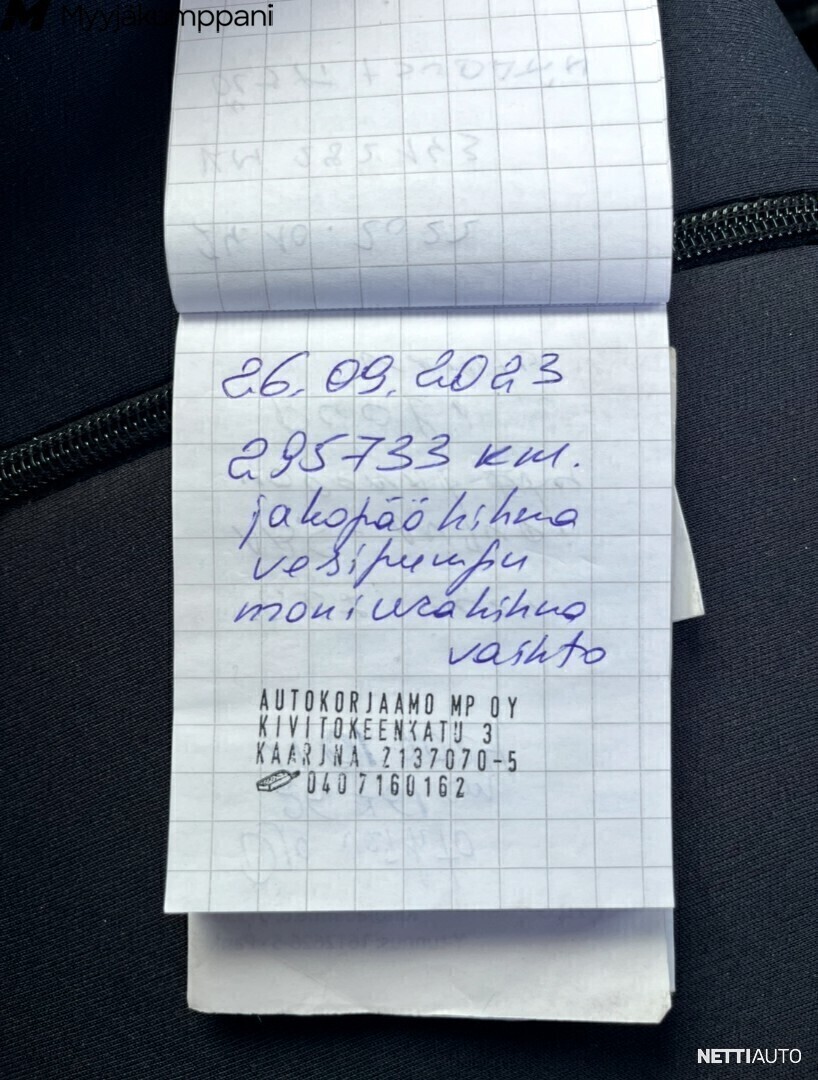 Myyjäkumppani
26.09.2023
295733 km.
jakopää hihna
vesipumpu
moniurahihna
vaihto
AUTOKORJAAMO MP OY
KIVITOKEENKATU 3
KAARJNA 2137070-5
040 7160162
NETTIAUTO